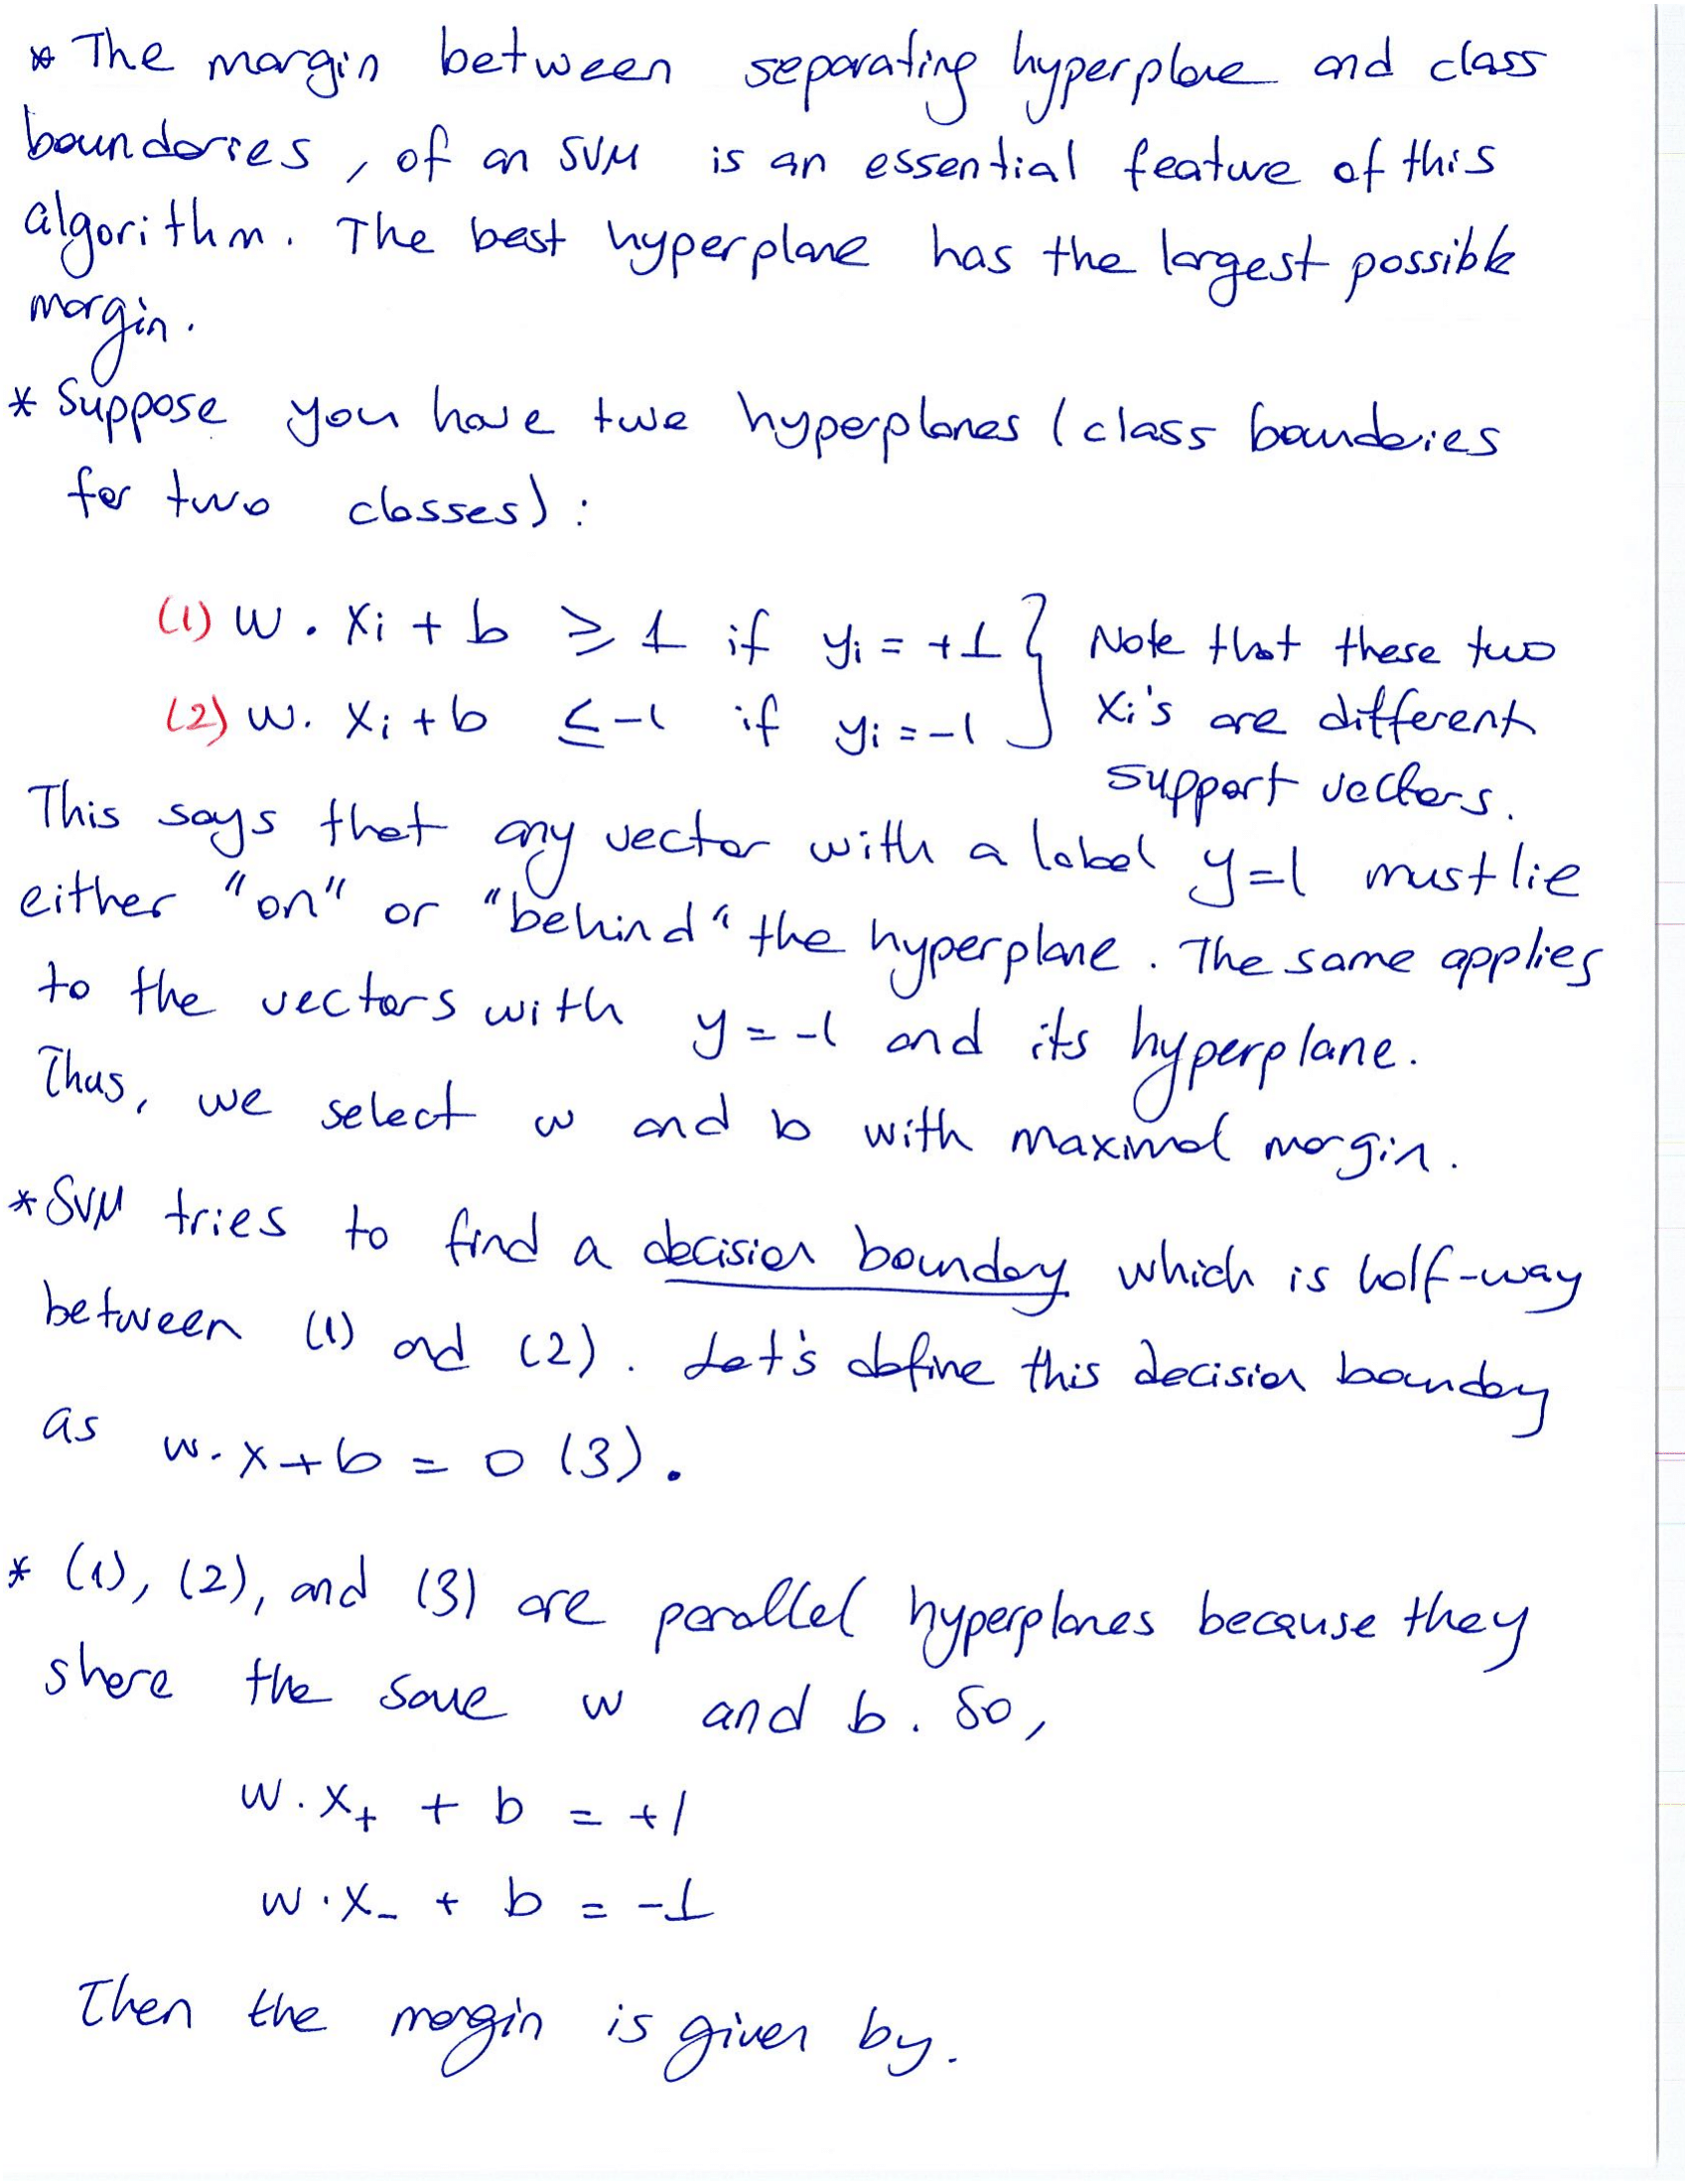 * The margin between separating hyperplane and class
boundaries, of an SVM is an essential feature of this
algorithm. The best hyperplane has the largest possible
margin.
* Suppose you have two hyperplanes (class boundaries
for two classes):
(1) w . xi + b ≥ 1 if yi = +1 } Note that these two
(2) w . xi + b ≤ -1 if yi = -1 xi's are different
support vectors.
This says that any vector with a label y=1 must lie
either "on" or "behind" the hyperplane. The same applies
to the vectors with y = -1 and its hyperplane.
Thus, we select w and b with maximal margin.
* SVM tries to find a decision boundary which is half-way
between (1) and (2). Let's define this decision boundary
as w.x+b = 0 (3).
* (1), (2), and (3) are parallel hyperplanes because they
share the same w and b. So,
w . x+ + b = +1
w . x- + b = -1
Then the margin is given by.